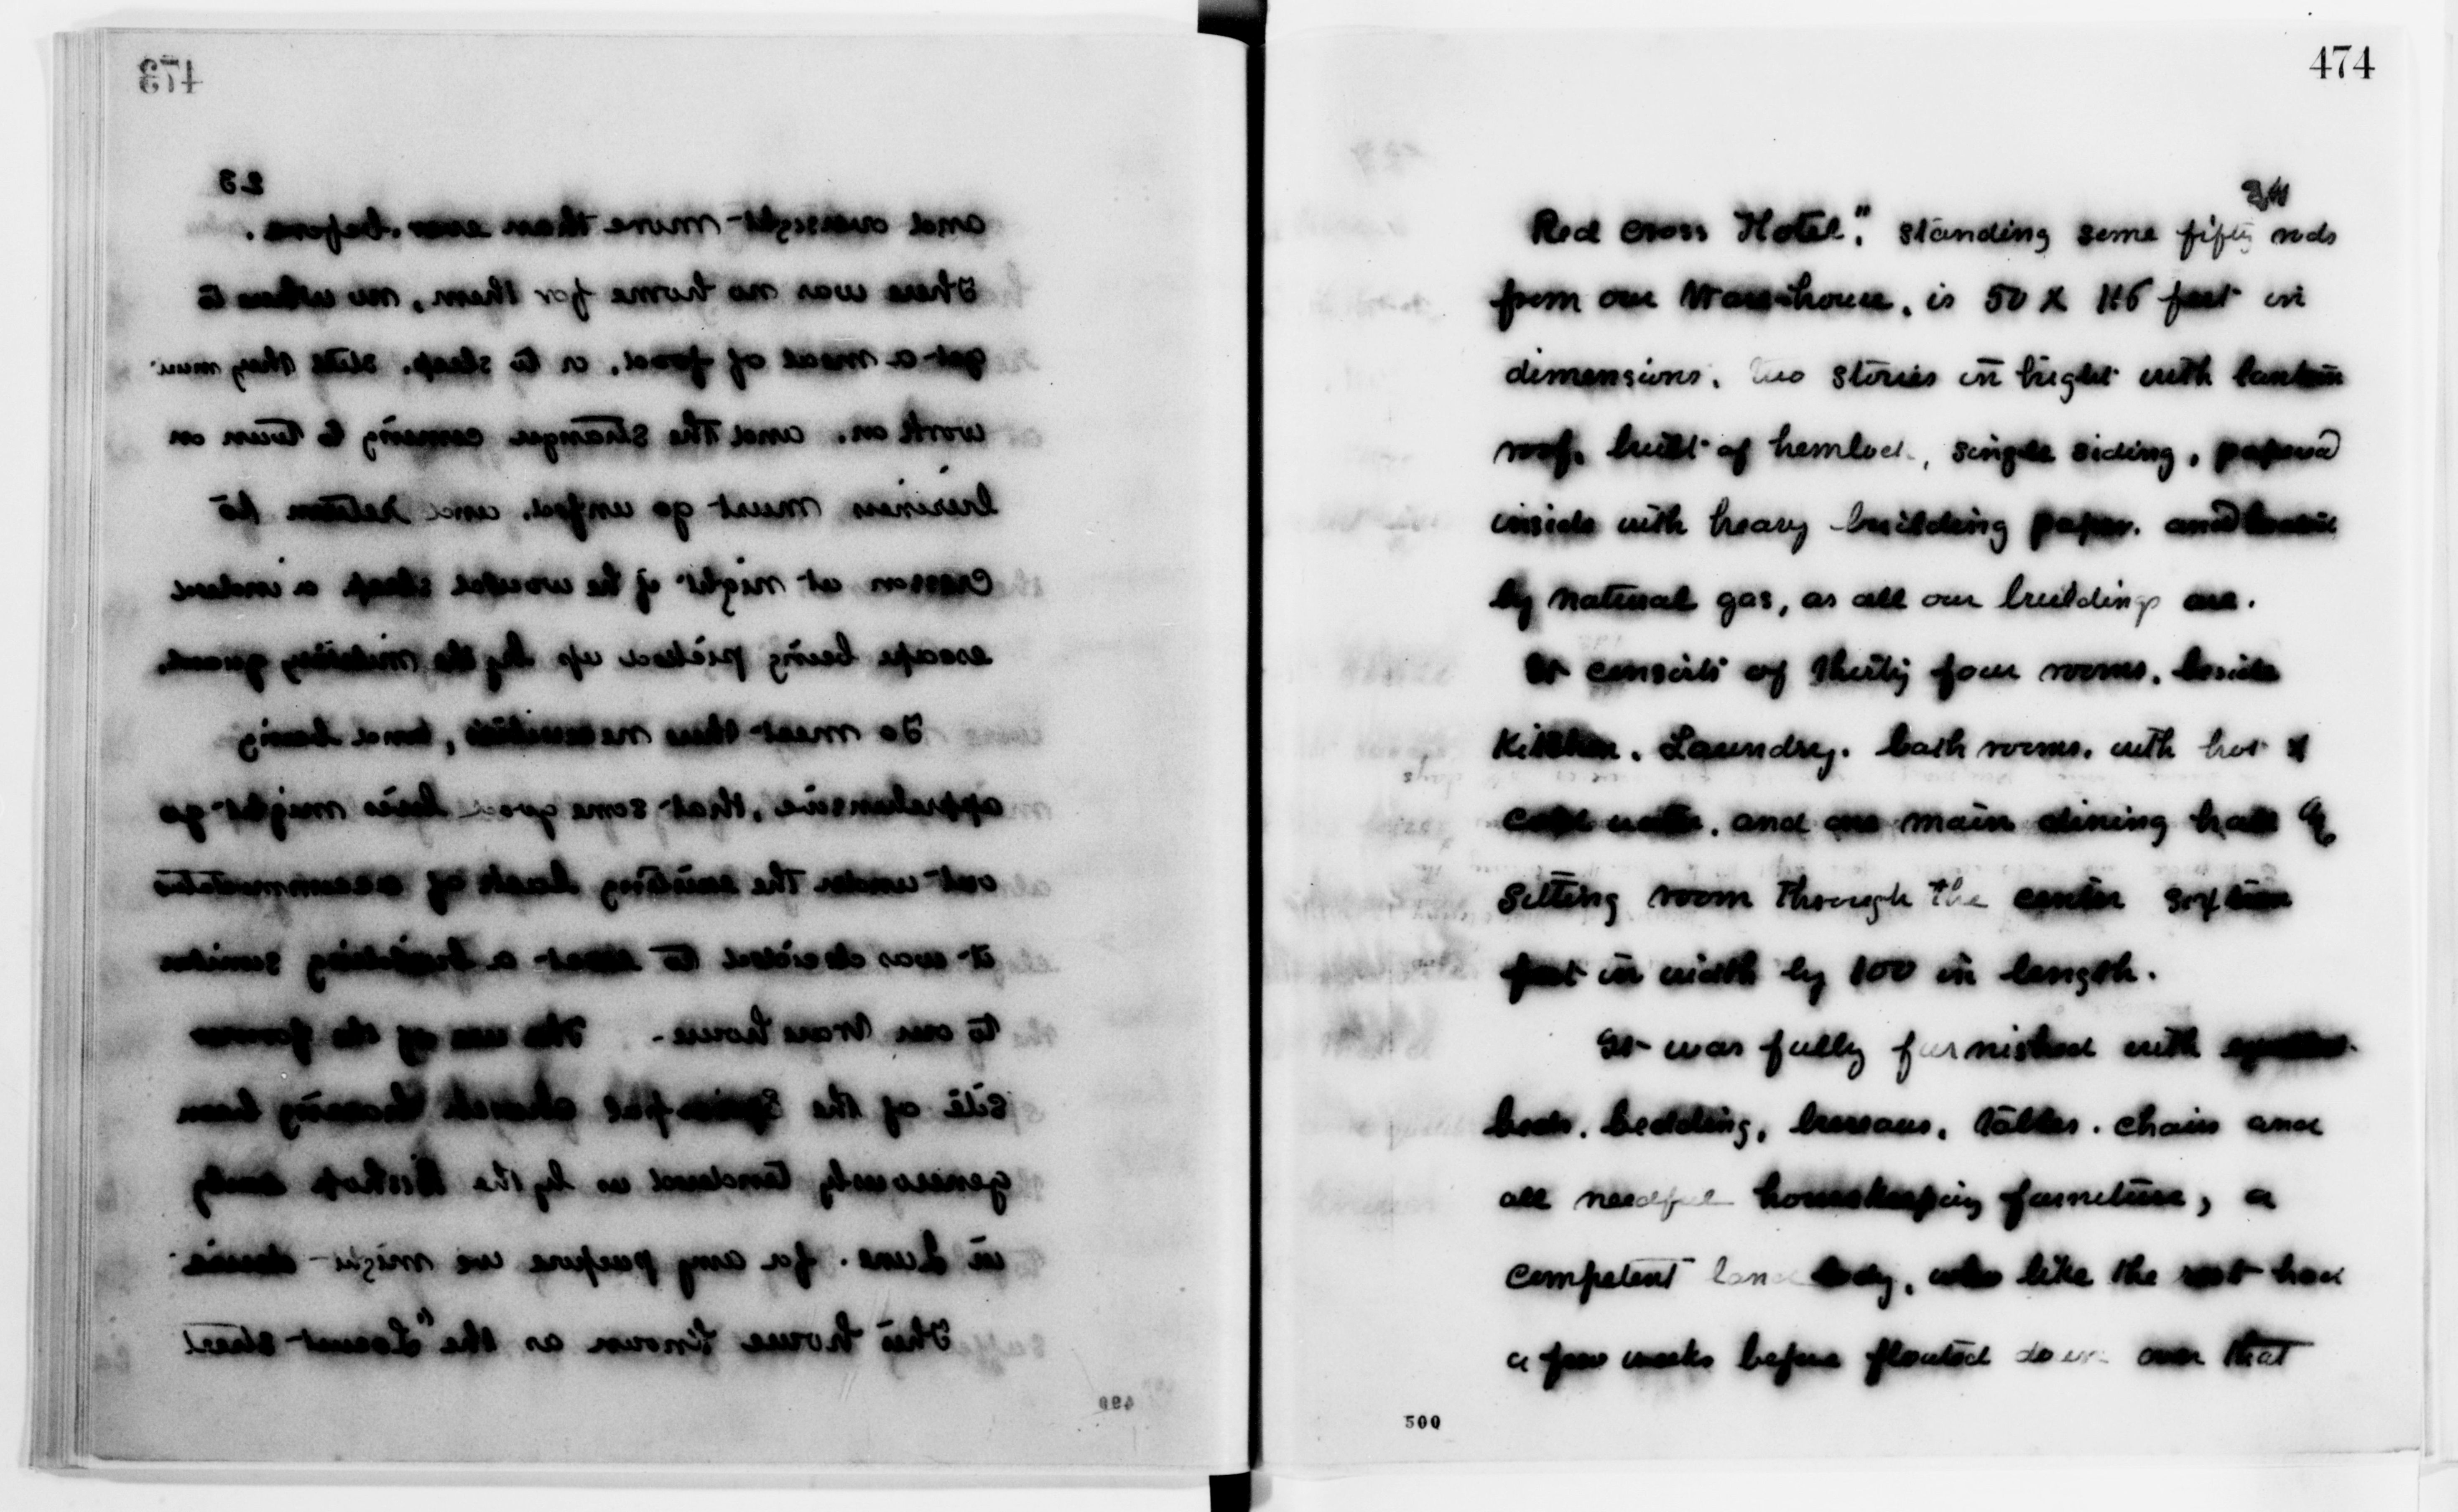 473
23
and oversight more than ever before.
There was no home for them, no where to
get a meal of food, or to sleep. Still they must
work on. and the stranger coming to town on
business must go unfed, and return to
Cresson at night if he would sleep or indeed
escape being picked up by the military guard.
To meet these necessities, and being
apprehensive, that some good lives might go
out under the existing lack of accommodations
it was decided to erect a building similar
to our Warehouse. The use of the former
site of the Episcopal church having been
generously tendered us by the Bishop early
in June. for any purpose we might desire.
This house known as the "Locust street
499
474
24
Red Cross Hotel". standing some fifty rods
from our Warehouse, is 50 X 116 feet in
dimensions, two stories in hight with lantern
roof, built of hemlock, single siding, papered
inside with heavy building paper. and heated
by natural gas, as all our buildings are.
It consists of thirty four rooms, beside
Kitchen. Laundry. bath rooms, with hot &
cold water. and one main dining hall &
Sitting room through the center sixteen
feet in width by 100 in length.
It was fully furnished with
beds. bedding, bureaus, tables. chairs and
all needful housekeeping furniture, a
competent land lady, who like the rest had
a few weeks before floated down over that
500